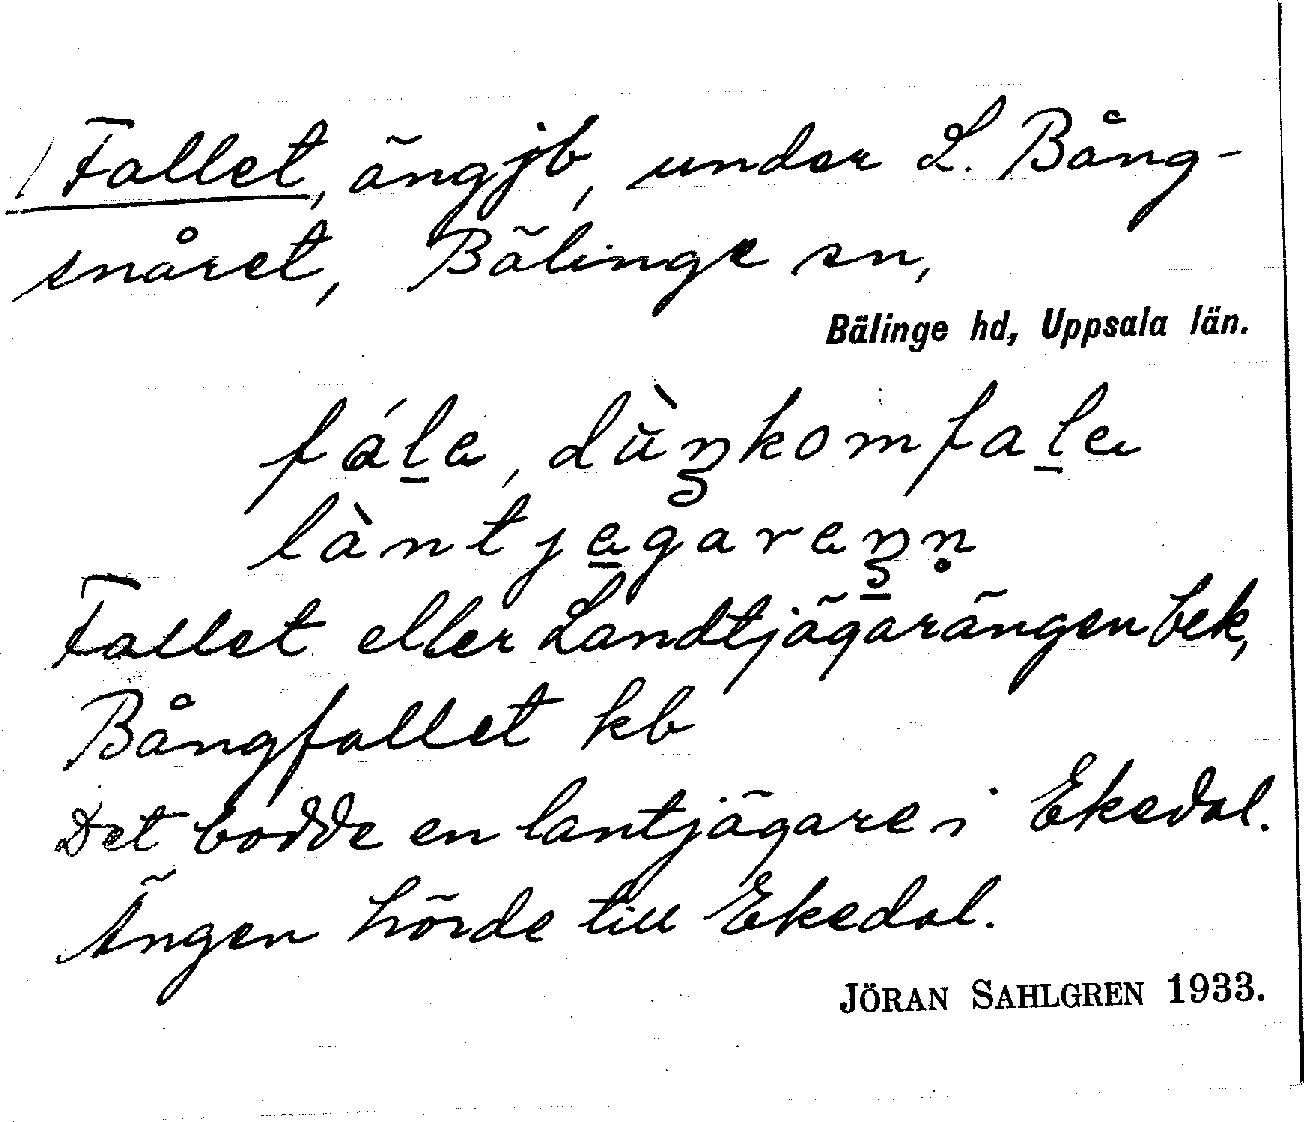 Fallet, ängjb, under L. Bång-
snåret, Bälinge sn,
Bälinge hd, Uppsala län.
fále, dùŋkomfale
làntjegareŋn̥
Fallet eller Landtjägarängen bek,
Bångfallet kb
Det bodde en lantjägare i Ekedal.
Ängen hörde till Ekedal.
JÖRAN SAHLGREN 1933.